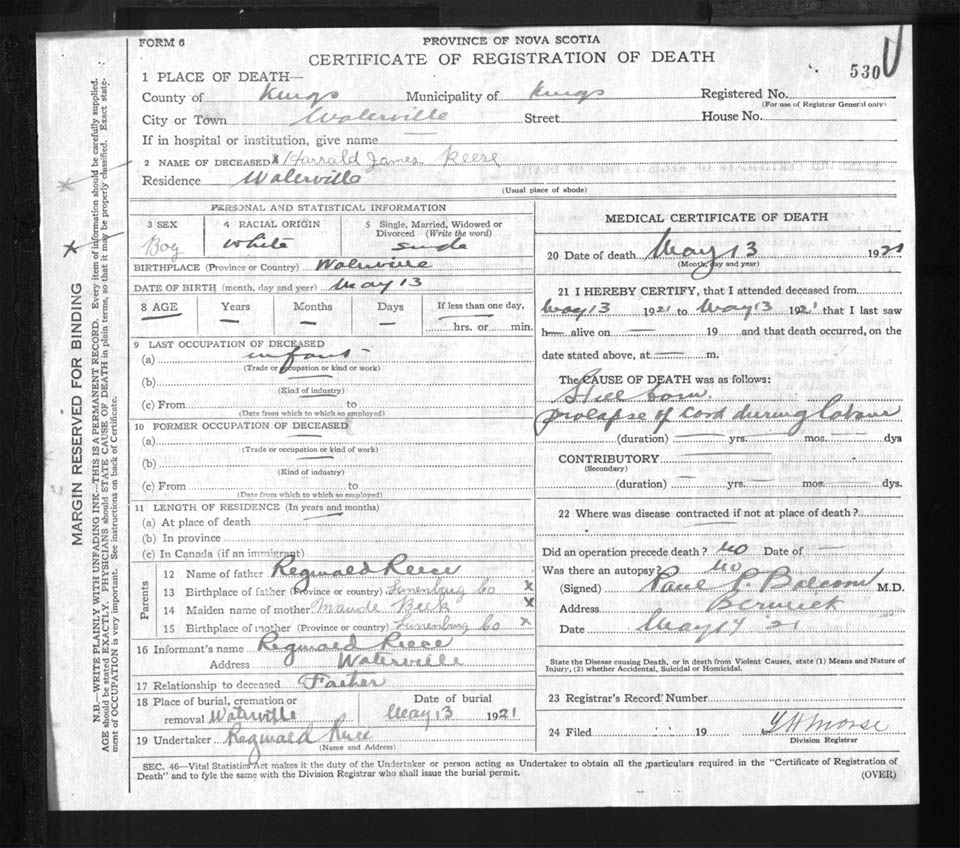 FORM 6
PROVINCE OF NOVA SCOTIA
CERTIFICATE OF REGISTRATION OF DEATH
530
1 PLACE OF DEATH—
County of Kings Municipality of Kings Registered No.
(For use of Registrar General only)
City or Town Waterville Street House No.
If in hospital or institution, give name —
2 NAME OF DECEASED Harrald James Reese
Residence Waterville
(Usual place of abode)
PERSONAL AND STATISTICAL INFORMATION
3 SEX 4 RACIAL ORIGIN 5 Single, Married, Widowed or Divorced (Write the word)
Boy White Single
BIRTHPLACE (Province or Country) Waterville
DATE OF BIRTH (month, day and year) May 13
8 AGE Years Months Days If less than one day,
— — — hrs. or min.
9 LAST OCCUPATION OF DECEASED
(a) infant
(Trade or occupation or kind of work)
(b)
(Kind of industry)
(c) From to
(Date from which to which so employed)
10 FORMER OCCUPATION OF DECEASED
(a)
(Trade or occupation or kind of work)
(b)
(Kind of industry)
(c) From to
(Date from which to which so employed)
11 LENGTH OF RESIDENCE (In years and months)
(a) At place of death
(b) In province
(c) In Canada (if an immigrant)
Parents
12 Name of father Reginald Reese
13 Birthplace of father (Province or country) Lunenburg Co x
14 Maiden name of mother Maude Beck x
15 Birthplace of mother (Province or country) Lunenburg Co x
16 Informant's name Reginald Reese
Address Waterville
17 Relationship to deceased Father
18 Place of burial, cremation or Date of burial
removal Waterville May 13 1921
19 Undertaker Reginald Reese
(Name and Address)
MEDICAL CERTIFICATE OF DEATH
20 Date of death May 13 1921
(Month, day and year)
21 I HEREBY CERTIFY, that I attended deceased from
May 13 1921 to May 13 1921 that I last saw
h alive on — 19 and that death occurred, on the
date stated above, at — m.
The CAUSE OF DEATH was as follows:
Still born
prolapse of cord during labour
(duration) yrs. mos. dys
CONTRIBUTORY
(Secondary)
(duration) yrs. mos. dys.
22 Where was disease contracted if not at place of death?
Did an operation precede death? No Date of —
Was there an autopsy? No
(Signed) Paul P. Balcom M.D.
Address Berwick
Date May 14 '21
State the Disease causing Death, or in death from Violent Causes, state (1) Means and Nature of
Injury, (2) whether Accidental, Suicidal or Homicidal.
23 Registrar's Record Number
24 Filed 19 Morse
Division Registrar
SEC. 46—Vital Statistics Act makes it the duty of the Undertaker or person acting as Undertaker to obtain all the particulars required in the "Certificate of Registration of
Death" and to fyle the same with the Division Registrar who shall issue the burial permit.
(OVER)
MARGIN RESERVED FOR BINDING
N.B.—WRITE PLAINLY WITH UNFADING INK—THIS IS A PERMANENT RECORD. Every item of information should be carefully supplied.
AGE should be stated EXACTLY. PHYSICIANS should STATE CAUSE OF DEATH in plain terms, so that it may be properly classified. Exact state-
ment of OCCUPATION is very important. See instructions on back of Certificate.